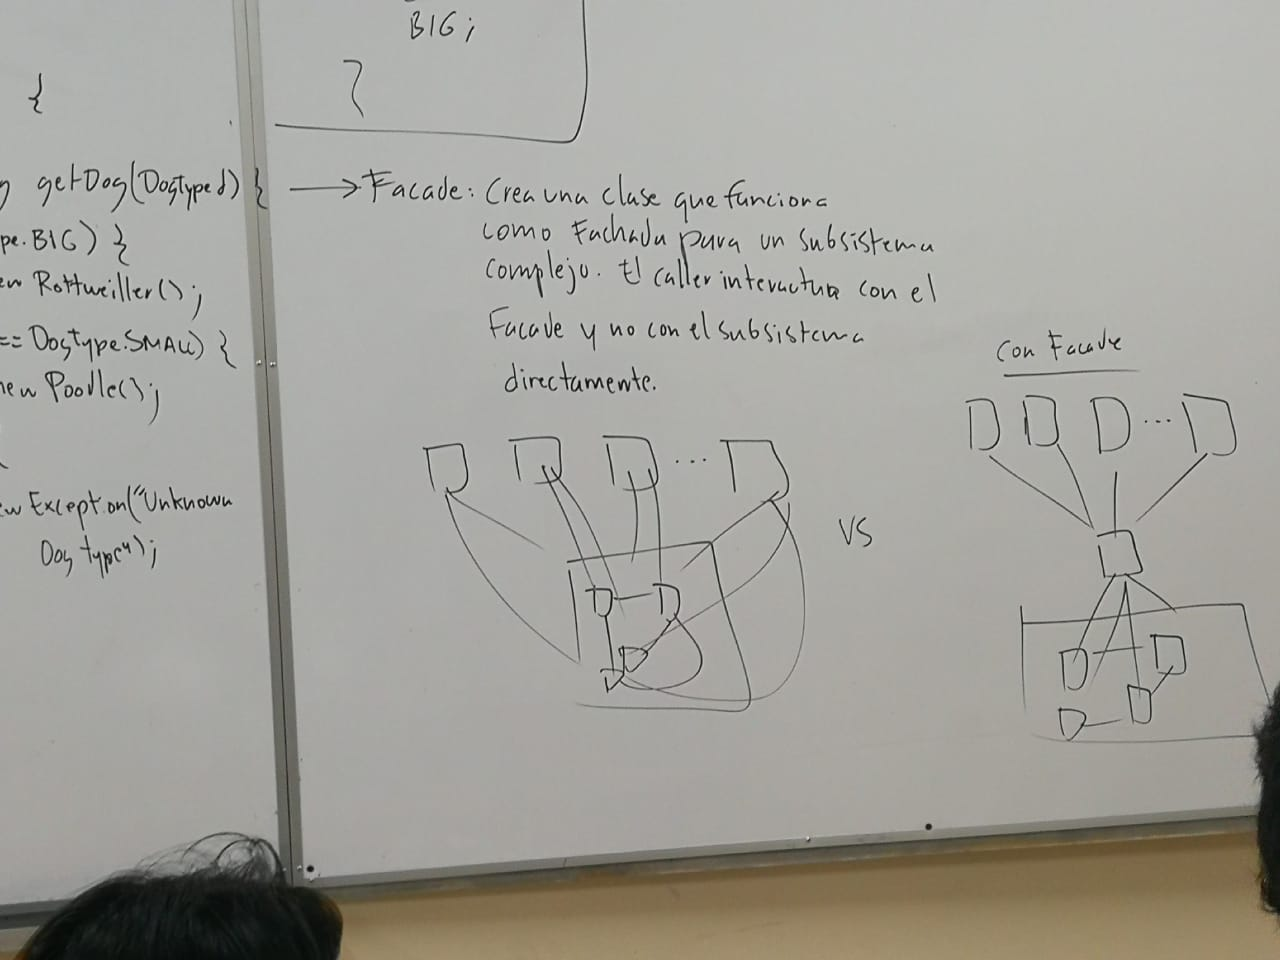 BIG;
}
{
getDog(Dogtype d) {
pe.BIG) {
Rottweiller();
== Dogtype.SMALL) {
new Poodle();
w Exception("Unknown
Dog type");
→ Facade: Crea una clase que funciona
como Fachada para un subsistema
complejo. El caller interactua con el
Facade y no con el subsistema
directamente.
VS
Con Facade
...
...